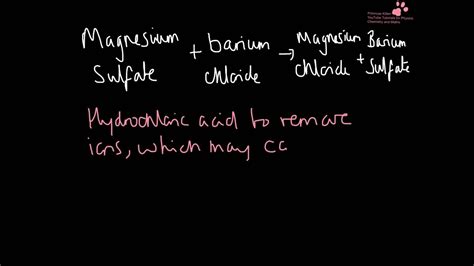 Primrose Kitten
YouTube Tutorials for Physics
Chemistry and Maths
Magnesium + barium → Magnesium Barium
Sulfate chloride chloride + Sulfate
Hydrochloric acid to remove
ions, which may cc